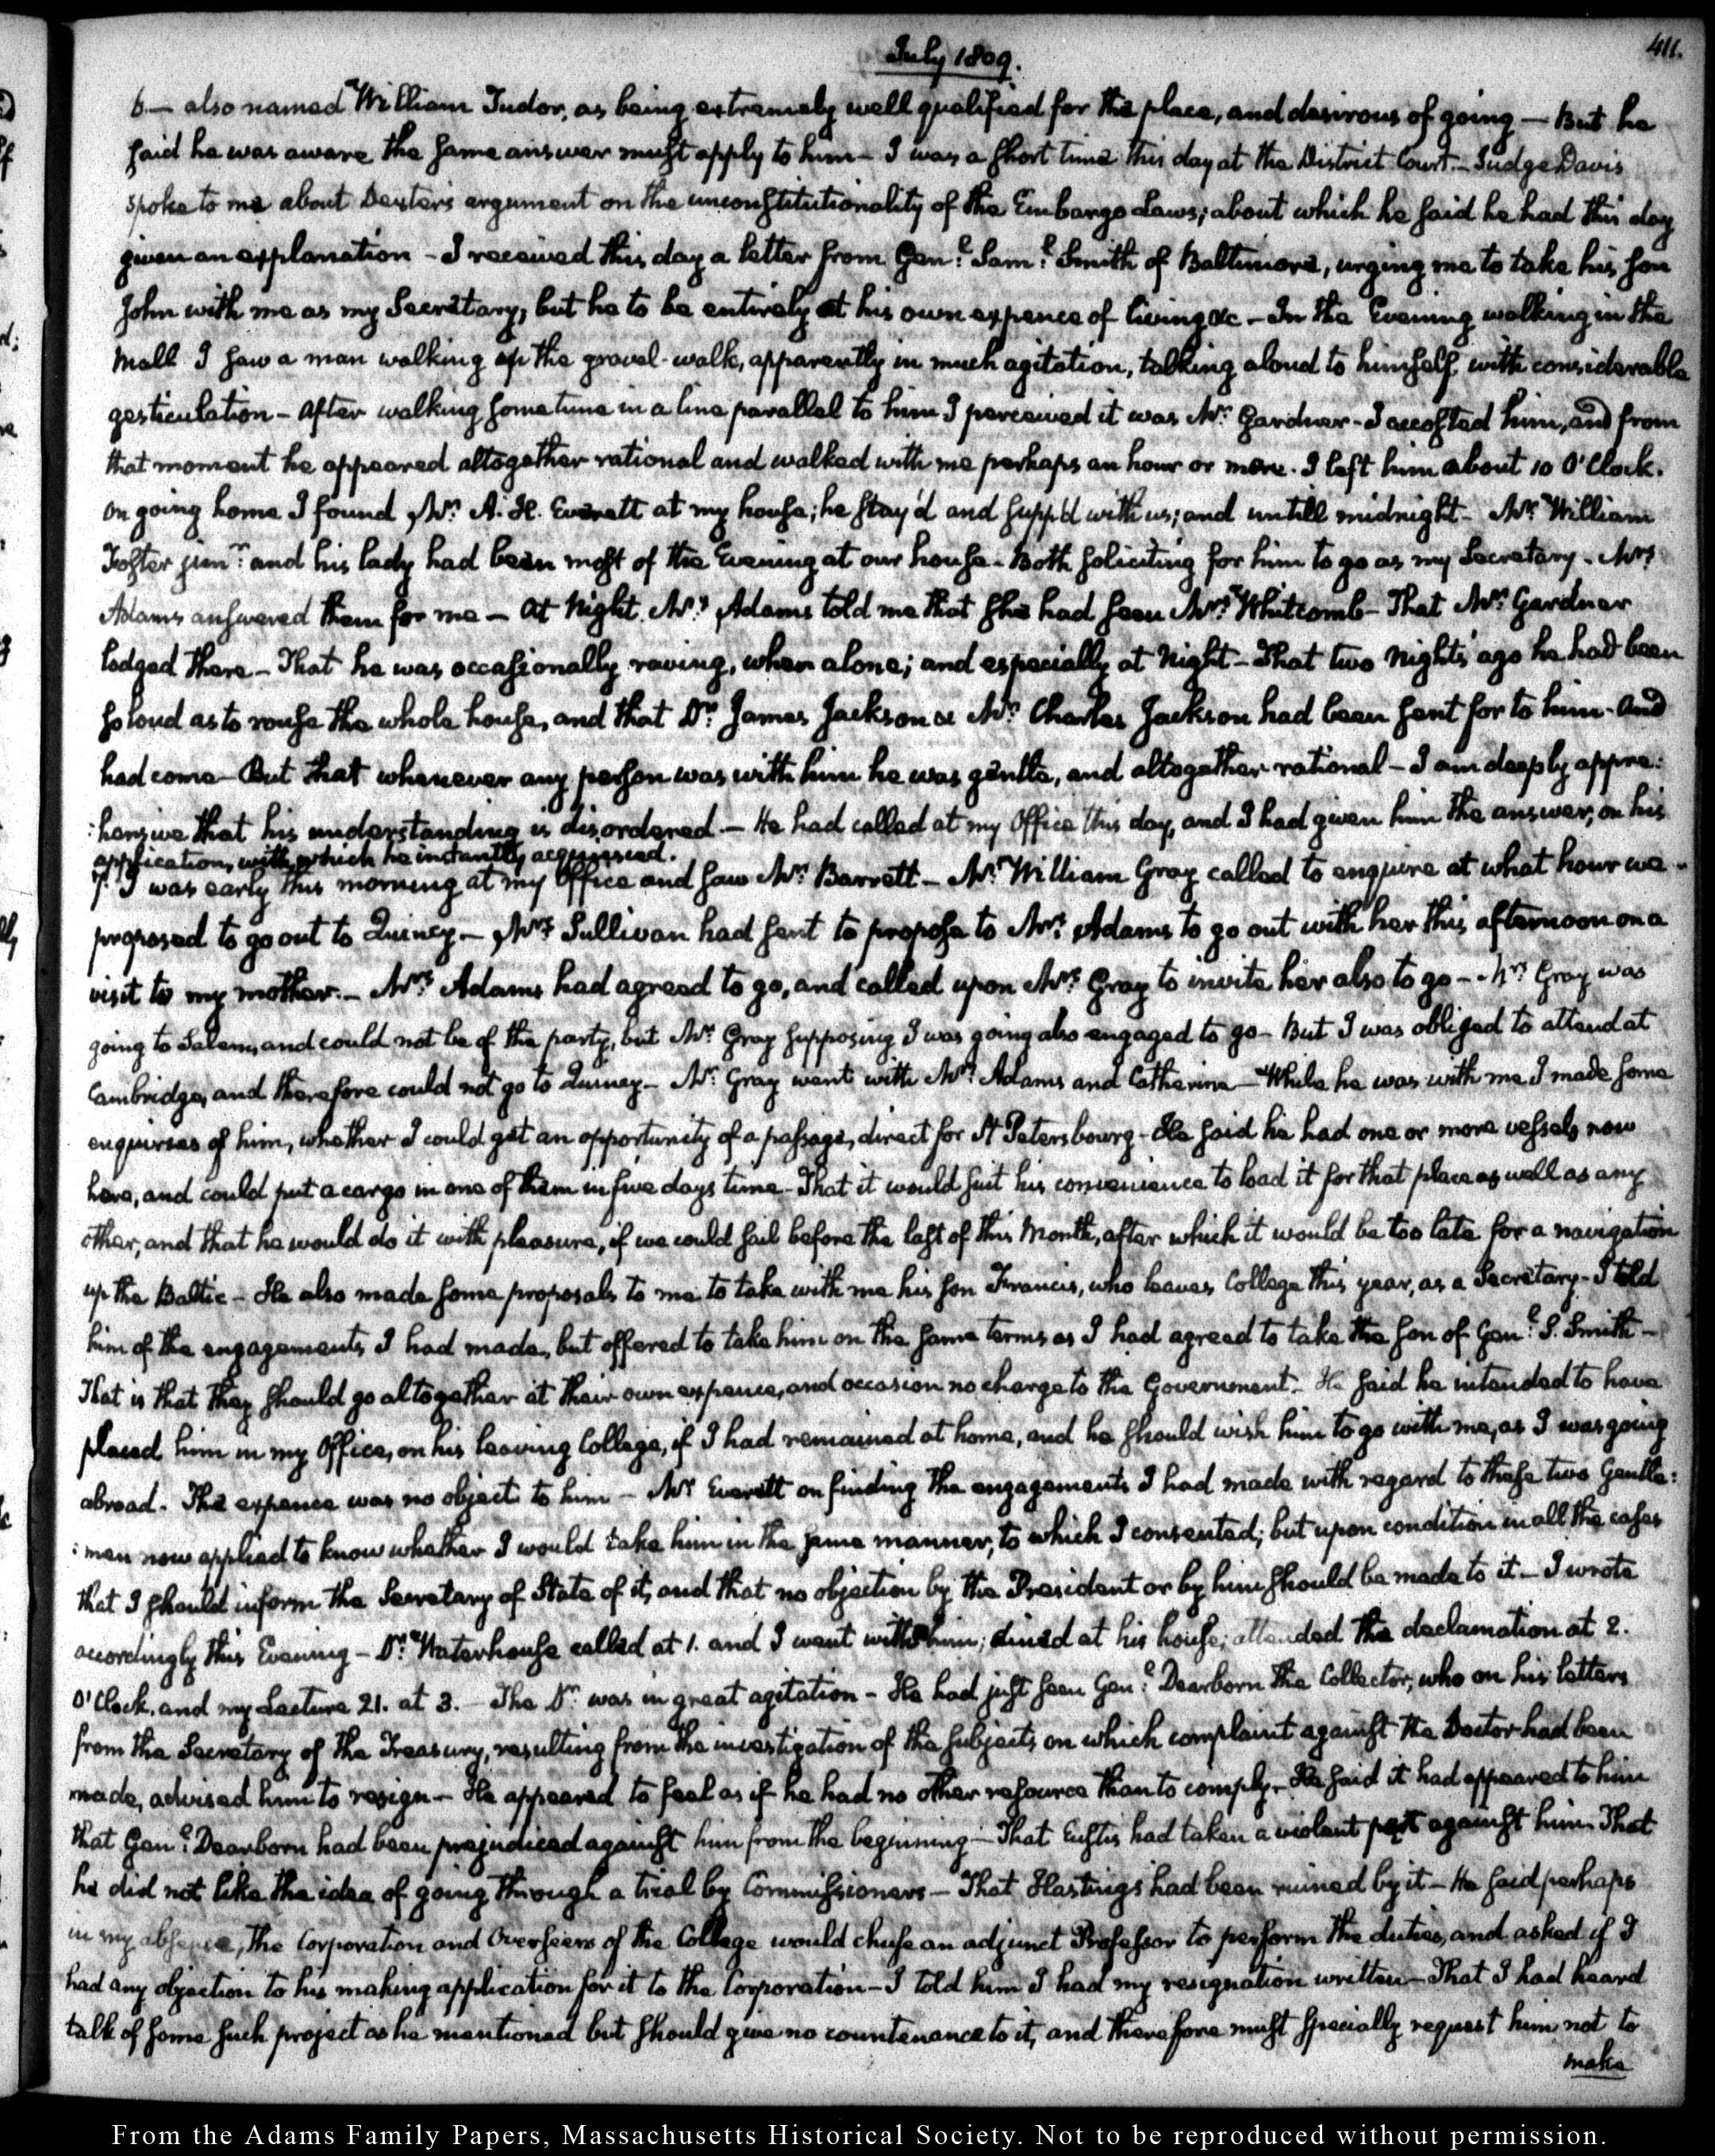 411.
July 1809.
6.— also named William Tudor, as being extremely well qualified for the place, and desirous of going — But he
said he was aware the same answer must apply to him — I was a short time this day at the District Court — Judge Davis
spoke to me about Dexter's argument on the unconstitutionality of the Embargo Laws; about which he said he had this day
given an explanation — I received this day a letter from Genl. Saml. Smith of Baltimore, urging me to take his son
John with me as my Secretary, but he to be entirely at his own expence of living &c — In the Evening walking in the
Mall I saw a man walking up the gravel-walk, apparently in much agitation, talking aloud to himself, with considerable
gesticulation — After walking some time in a line parallel to him I perceived it was Mr. Gardner — I accosted him, and from
that moment he appeared altogether rational and walked with me perhaps an hour or more. I left him about 10 O'Clock.
On going home I found Mr. A. H. Everett at my house; he stay'd and supp'd with us; and untill midnight — Mr. William
Foster junr. and his lady had been most of the Evening at our house — Both soliciting for him to go as my Secretary — Mrs.
Adams answered them for me — At Night Mrs. Adams told me that she had seen Mrs. Whitcomb — That Mr. Gardner
lodged there — That he was occasionally raving, when alone; and especially at Night — That two Nights ago he had been
so loud as to rouse the whole house, and that Dr. James Jackson & Mr. Charles Jackson had been sent for to him — and
had come — But that whenever any person was with him he was gentle, and altogether rational — I am deeply appre:
:hensive that his understanding is disordered — He had called at my Office this day, and I had given him the answer, on his
application, with which he instantly acquiesced.
7. I was early this morning at my Office and saw Mr. Barrett — Mr. William Gray called to enquire at what hour we
proposed to go out to Quincy — Mrs. Sullivan had sent to propose to Mrs. Adams to go out with her this afternoon on a
visit to my mother — Mrs. Adams had agreed to go, and called upon Mrs. Gray to invite her also to go — Mrs. Gray was
going to Salem, and could not be of the party, but Mr. Gray supposing I was going also engaged to go — But I was obliged to attend at
Cambridge, and therefore could not go to Quincy — Mr. Gray went with Mrs. Adams and Catherine — While he was with me I made some
enquiries of him, whether I could get an opportunity of a passage, direct for St Petersbourg — He said he had one or more vessels now
here, and could put a cargo in one of them in five days time — That it would suit his convenience to load it for that place as well as any
other, and that he would do it with pleasure, if we could sail before the last of this Month, after which it would be too late for a navigation
up the Baltic — He also made some proposals to me to take with me his son Francis, who leaves College this year, as a Secretary — I told
him of the engagements I had made, but offered to take him on the same terms as I had agreed to take the son of Genl. S. Smith —
That is that they should go altogether at their own expence, and occasion no charge to the Government — He said he intended to have
placed him in my Office, on his leaving College, if I had remained at home, and he should wish him to go with me, as I was going
abroad. The expence was no object to him — Mr. Everett on finding the engagements I had made with regard to these two Gentle:
:men now applied to know whether I would take him in the same manner, to which I consented; but upon condition in all the cases
that I should inform the Secretary of State of it, and that no objection by the President or by him should be made to it — I wrote
accordingly this Evening — Dr. Waterhouse called at 1. and I went with him; dined at his house; attended the declamation at 2.
O'Clock, and my Lecture 21. at 3. — The Dr. was in great agitation — He had just seen Genl. Dearborn the Collector, who on his letters
from the Secretary of the Treasury, resulting from the investigation of the subjects on which complaint against the Doctor had been
made, advised him to resign — He appeared to feel as if he had no other resource than to comply — He said it had appeared to him
that Genl. Dearborn had been prejudiced against him from the beginning — That Eustis had taken a violent part against him. That
he did not like the idea of going through a trial by Commissioners — That Hastings had been ruined by it — He said perhaps
in my absence, the Corporation and Overseers of the College would chuse an adjunct Professor to perform the duties, and asked if I
had any objection to his making application for it to the Corporation — I told him I had my resignation written — That I had heard
talk of some such project as he mentioned but should give no countenance to it, and therefore must specially request him not to
make
From the Adams Family Papers, Massachusetts Historical Society. Not to be reproduced without permission.